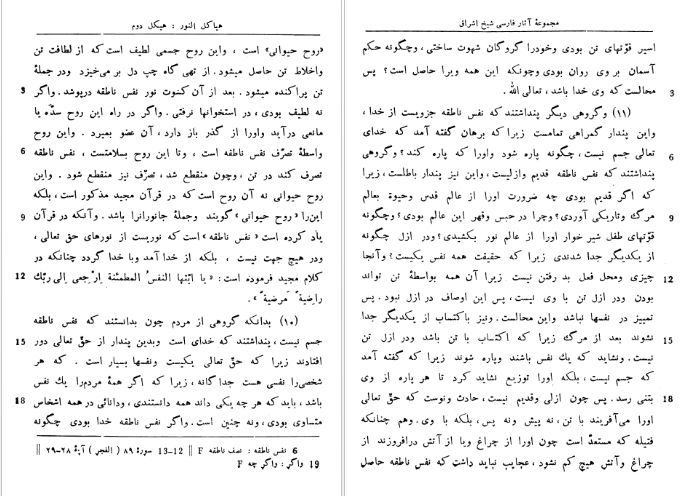 هیاکل النور : هیکل دوم
«روح حیوانی» است ، واین روح جسمی لطیف است که از لطافت تن
واخلاط تن حاصل میشود. از تهی گاه چپ دل بر می‌خیزد ودر جملهٔ
تن پراکنده میشود . بعد از آن کسوت نور نفس ناطقه درپوشد. واگر 3
نه لطیف بودی ، در استخوانها نرفتی. واگر در راه این روح سدّه یا
مانعی درآید واورا از گذر باز دارد ، آن عضو بمیرد . واین روح
واسطهٔ تصرّف نفس ناطقه است ، وتا این روح بسلامتست ، نفس ناطقه 6
تصرف کند در تن ، وچون منقطع شد ، تصرّف نیز منقطع شود . واین
روح حیوانی نه آن روح است که در قرآن مجید مذکور است ، بلکه
این‌را «روح حیوانی» گویند وجملهٔ جانورانرا باشد . وآنکه در قرآن 9
یاد کرده است «نفس ناطقه» است که نوریست از نورهای حق تعالی ،
ودر هیچ جهت نیست ، بلکه از خدا آمد وبا خدا گردد چنانکه در
کلام مجید فرموده است : «یا ایّتها النفسُ المطمئنة اِرْجعی اِلی ربّك 12
راضیةً مَرضیةً» .
(۱۰) بدانکه گروهی از مردم چون بدانستند که نفس ناطقه
جسم نیست، پنداشتند که خدای است وبدین پندار از حقّ تعالی دور 15
افتادند زیرا که حقّ تعالی یکیست ونفسها بسیار است . که هر
شخصی‌را نفسی هست جداگانه ، زیرا که اگر همهٔ مردم‌را یك نفس
باشد ، باید که هر چه یکی داند همه دانستندی ، ودانائی در همه اشخاص 18
متساوی بودی ، ونه چنین است. واگر نفس ناطقه خدا بودی چگونه
6 نفس ناطقه : نصف ناطقه F || 12-13 سورهٔ ۸۹ ( الفجر ) آیهٔ ۲۸-۲۹ ||
19 واگر : واگر چه F
مجموعهٔ آثار فارسی شیخ اشراق
اسیر قوّتهای تن بودی وخودرا گروگان شهوت ساختی ، وچگونه حکم
آسمان بر وی روان بودی وچونکه این همه ویرا حاصل است؟ پس
محالست که وی خدا باشد ، تعالی الله . 3
(۱۱) وگروهی دیگر پنداشتند که نفس ناطقه جزویست از خدا ،
واین پندار گمراهی تمامست زیرا که برهان گفته آمد که خدای
تعالی جسم نیست، چگونه پاره شود واورا که پاره کند؟ وگروهی 6
پنداشتند که نفس ناطقه قدیم وازلیست، واین نیز پندار باطلست، زیرا
که اگر قدیم بودی چه ضرورت اورا از عالم قدس وحیوة بعالم
مرگ وتاریکی آوردی؟ وچرا در حبس وقهر این عالم بودی؟ وچگونه 9
قوّتهای طفل شیر خوار اورا از عالم نور بکشیدی؟ ودر ازل چگونه
از یکدیگر جدا شدندی زیرا که حقیقت همه نفس یکیست؟ وآنجا
چیزی ومحل فعل بد رفتن نیست زیرا آن همه بواسطهٔ تن تواند 12
بودن ودر ازل تن با وی نیست ، پس این اوصاف در ازل نبود . پس
تمییز در نفسها نباشد واین محالست. ونیز باکتساب از یکدیگر جدا
نشوند بعد از مرگ زیرا که اکتساب با تن باشد ودر ازل تن 15
نیست. ونشاید که یك نفس باشند وپاره شوند زیرا که گفته آمد
که جسم نیست ، بلکه اورا توزیع نشاید کرد تا هر پاره از وی
بتنی رسد. پس چون ازلی وقدیم نیست ، حادث ونوست که حق تعالی 18
اورا می‌آفریند با تن ، نه پیش ونه پس ، بلکه با وی . وهم چنانکه
فتیله که مستعدّ است چون اورا از چراغ ویا از آتش درافروزند از
چراغ وآتش هیچ کم نشود ، عجایب نباید داشت که نفس ناطقه حاصل